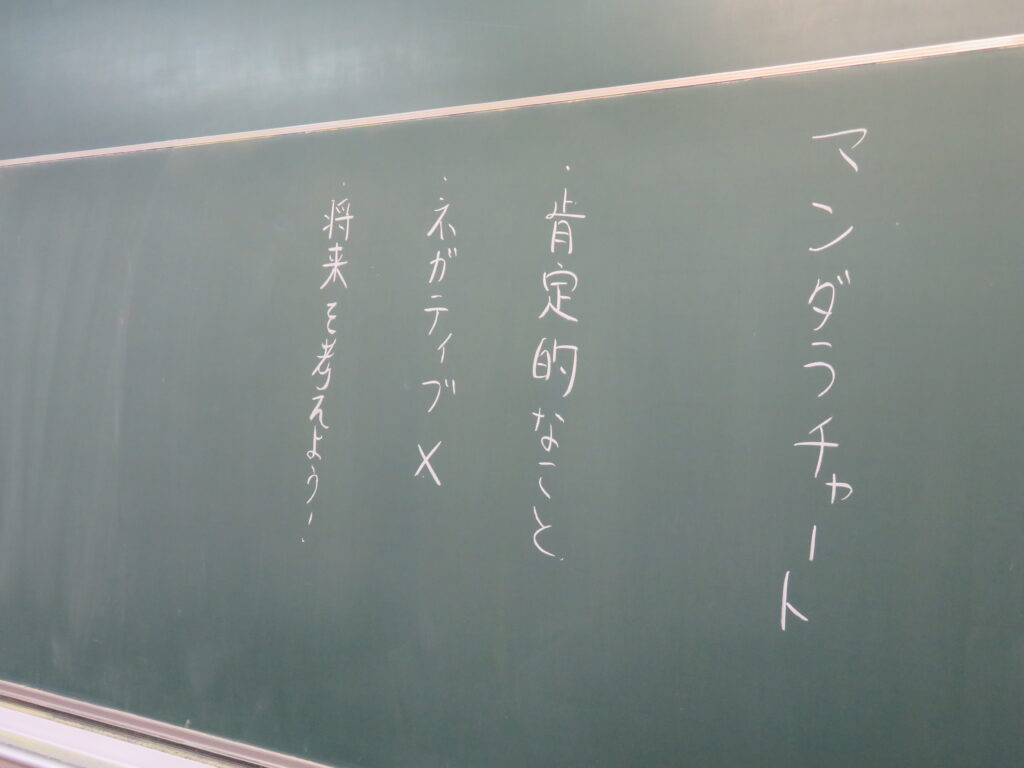 マンダラチャート
・肯定的なこと
・ネガティブ×
・将来を考えよう!